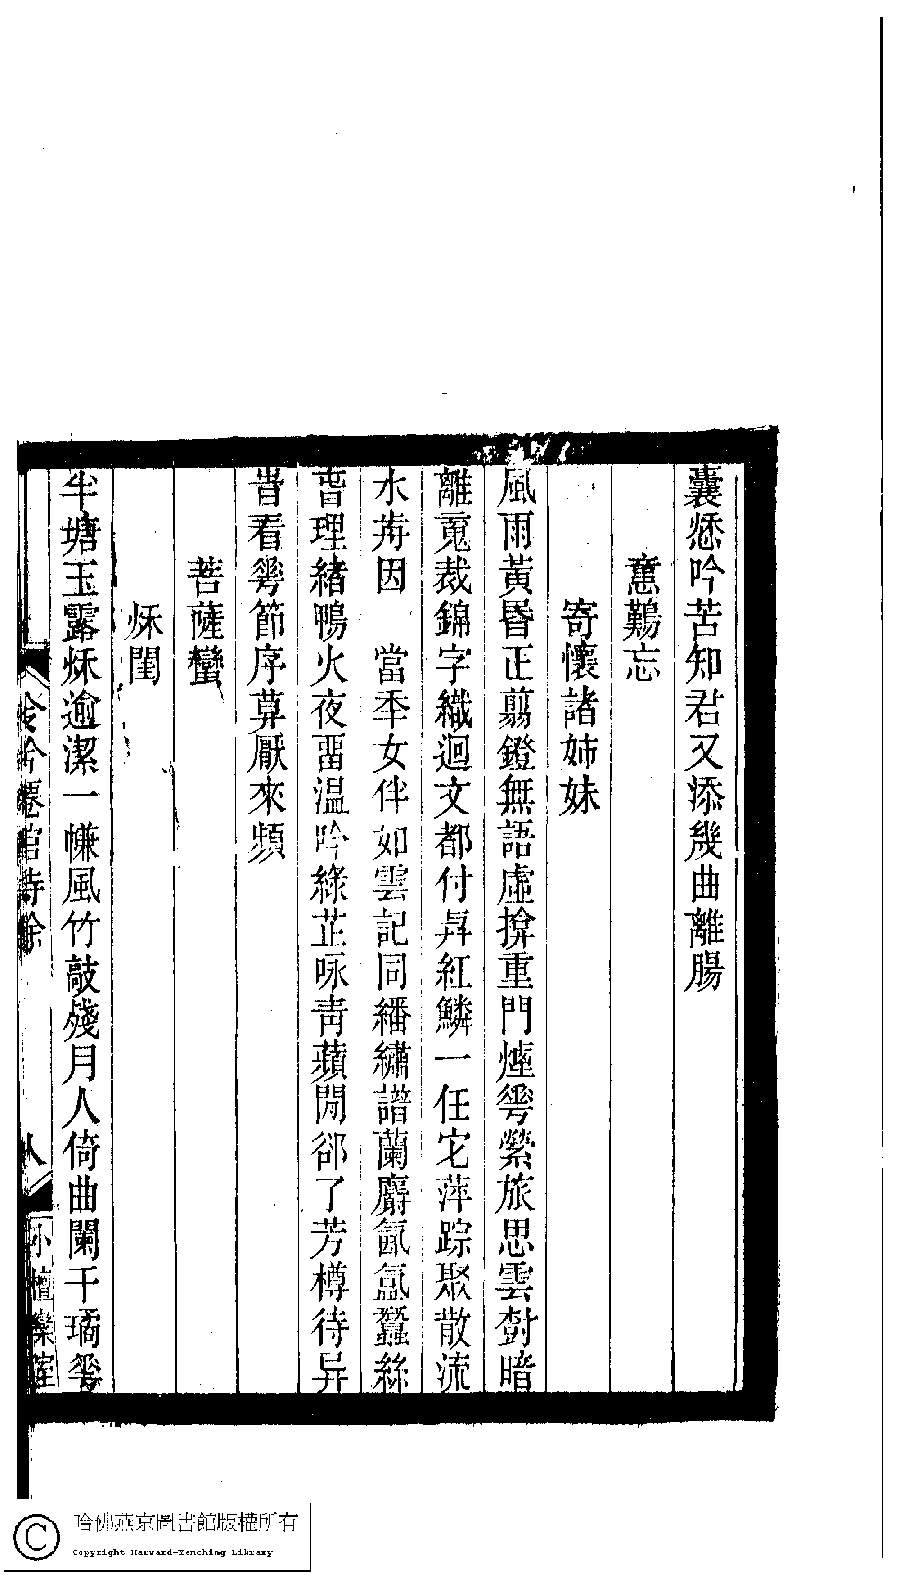 囊愁吟苦知君又添幾曲離腸
意難忘
寄懷諸姊妹
風雨黃昬正翦鐙無語虛揜重門煙
縈旅思雲樹暗
離寬裁錦字織迴文都付與紅鱗一任它萍踪聚散流
水前因　當年女伴如雲記同繙繡譜蘭麝氤氳蠶絲
理緒鴨火夜畱温吟綠芷咏青蘋閒卻了芳樽待异
看節序莫厭來頻
菩薩蠻
秌閨
半塘玉露秌逾潔一㡘風竹敲殘月人倚曲闌干
吟館詩餘
八
小檀欒室
哈佛燕京圖書館版權所有
Copyright Harvard-Yenching Library